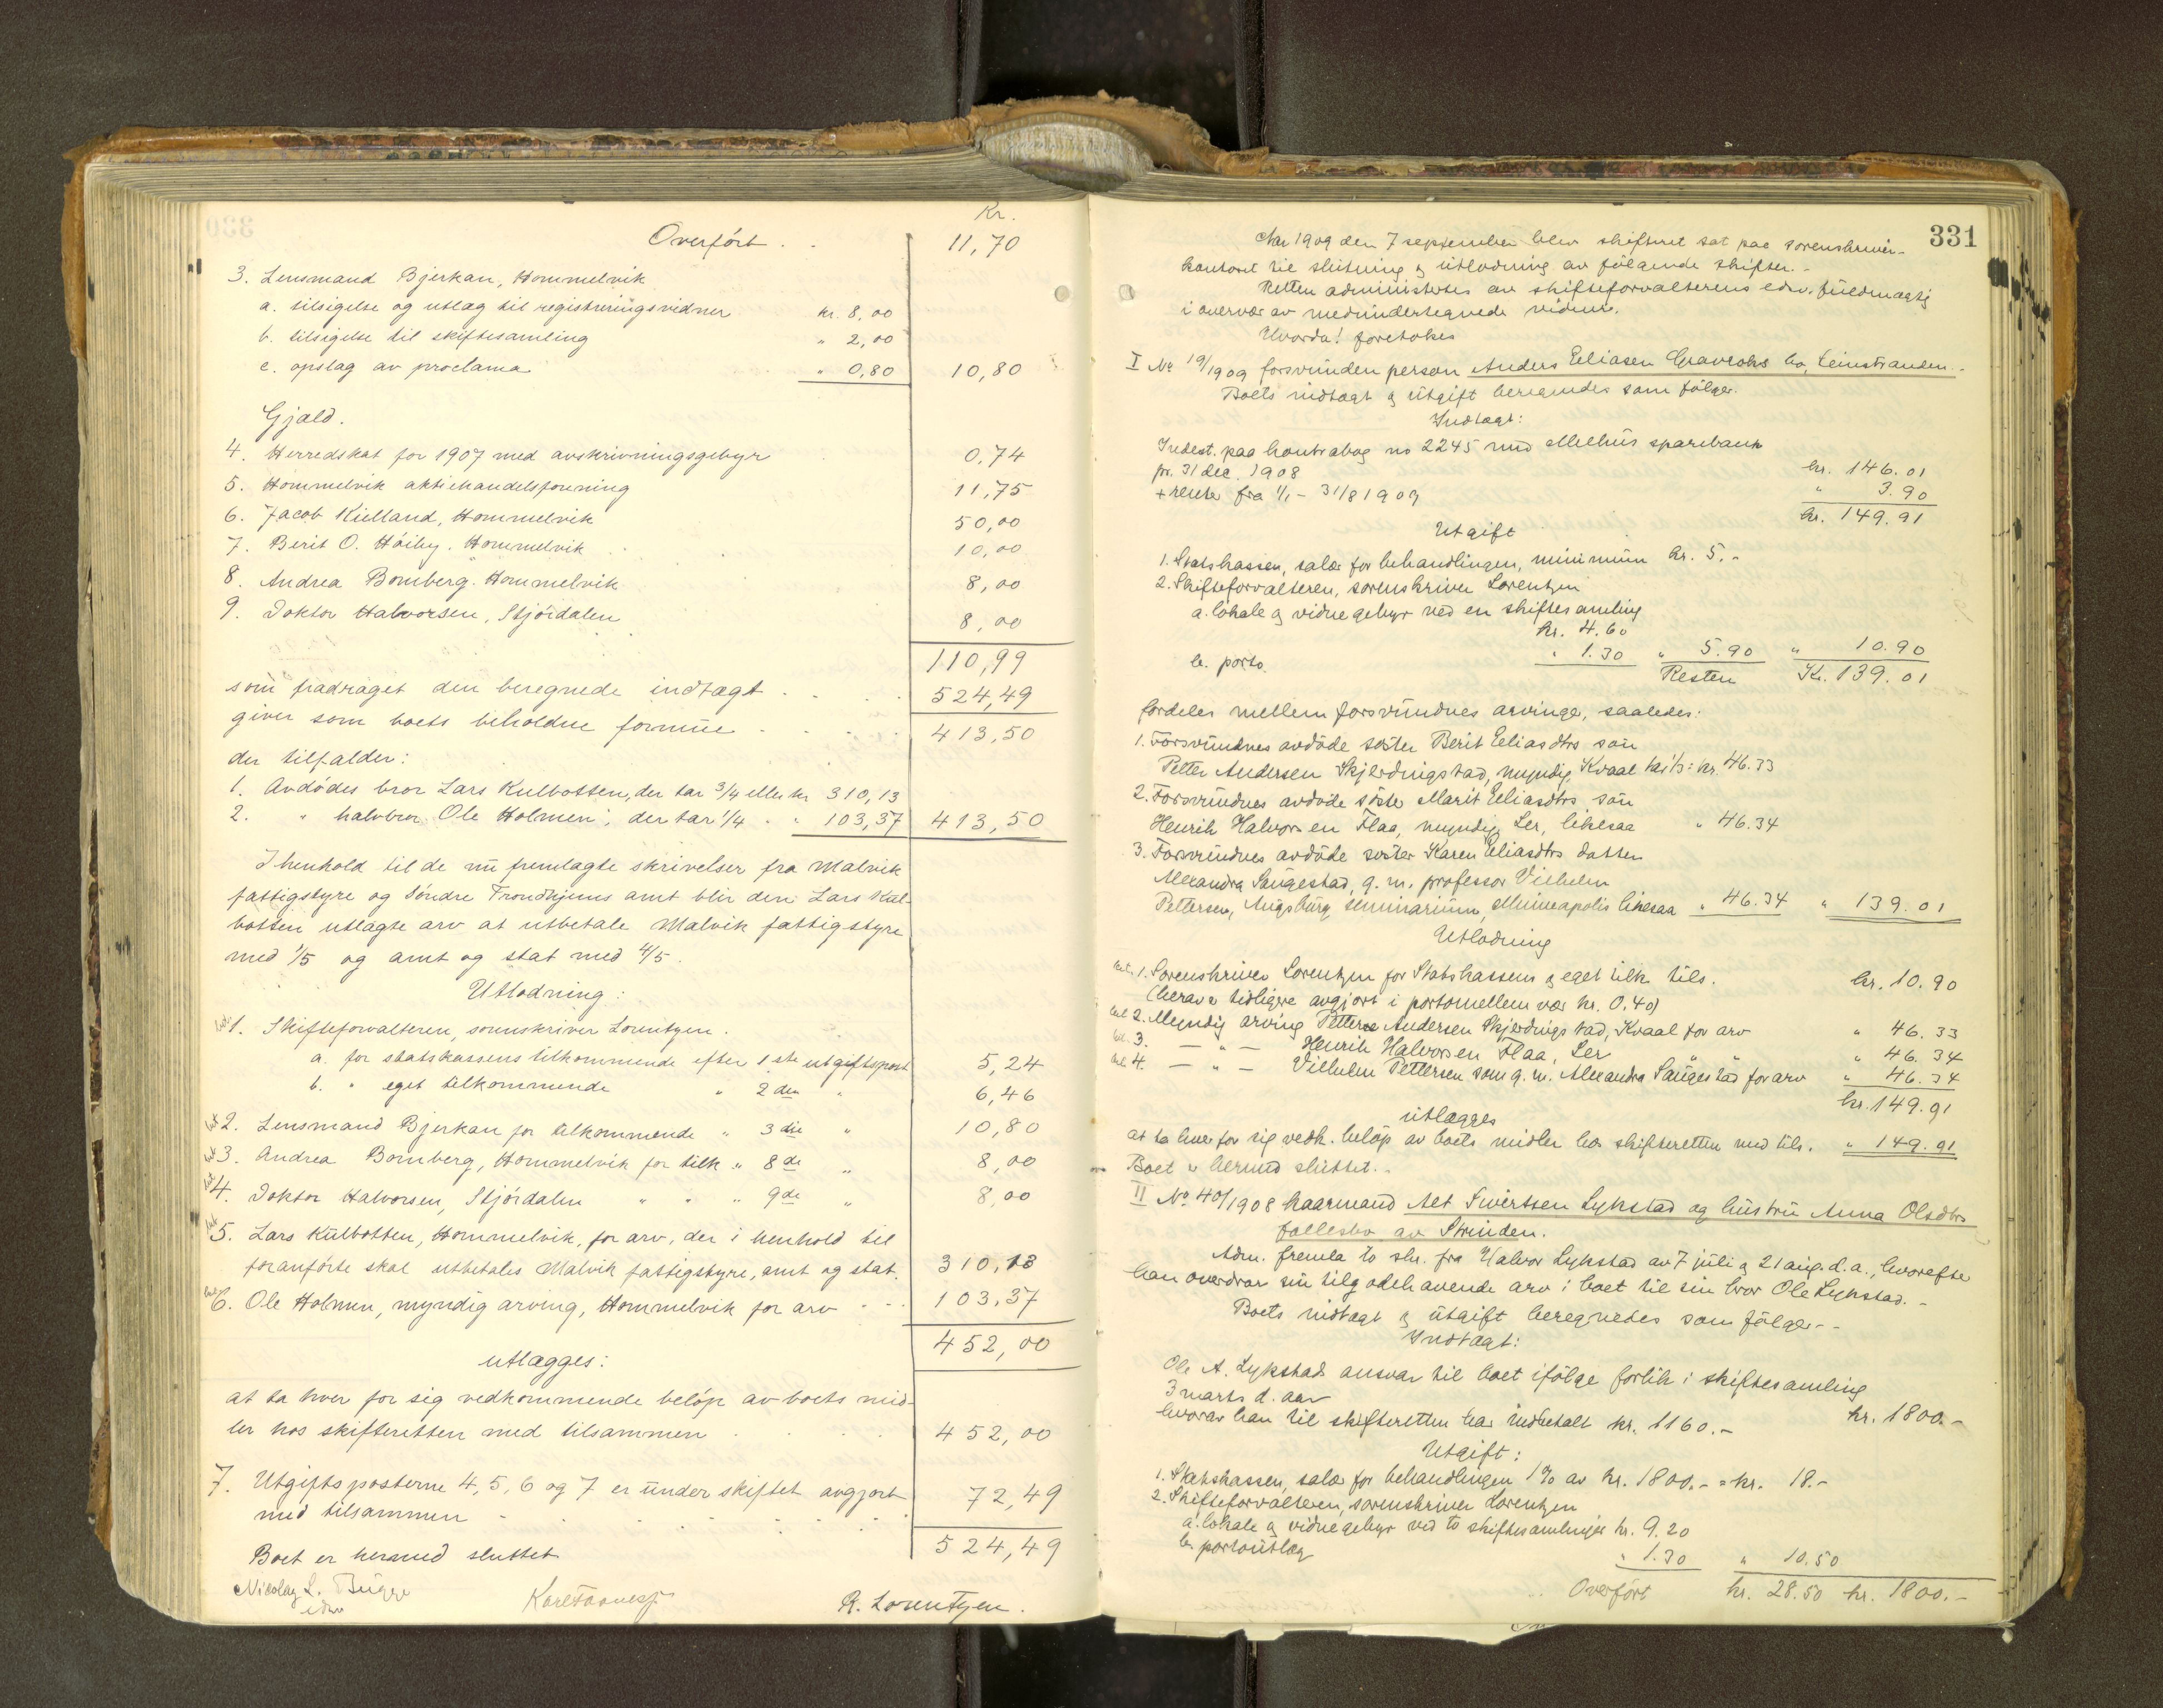 Kr.
Overført . . 11,70
3. Lensmand Bjerkan, Hommelvik
a. tilsigelse og utlæg til registreringsvidner kr. 8,00
b. tilsigelse til skiftesamling " 2,00
c. opslag av proclama " 0,80 10,80
Gjæld.
4. Herredskat for 1907 med avskrivningsgebyr 0,74
5. Hommelvik aktiehandelsforening 11,75
6. Jacob Kielland, Hommelvik 50,00
7. Berit O. Høiby, Hommelvik 10,00
8. Andrea Bomberg. Hommelvik 8,00
9. Doktor Halvorsen, Stjørdalen 8,00
110,99
som fradraget den beregnede indtægt . . . 524,49
giver som boets beholdne formue . . . . 413,50
der tilfalder:
1. Avdødes bror Lars Kulbotten, der tar 3/4 eller kr 310,13
2. " halvbror Ole Holmen, der tar 1/4 " " 103,37 413,50
I henhold til de nu fremlagte skrivelser fra Malvik
fattigstyre og Søndre Trondhjems amt blir den Lars Kul-
botten utlagte arv at utbetale Malvik fattigstyre
med 1/5 og amt og stat med 4/5.
Utlodning:
1. Skifteforvalteren, sorenskriver Lorentzen.
a. for statskassens tilkommende efter 1ste utgiftspost 5,24
b. " eget tilkommende " 2den " 6,46
2. Lensmand Bjerkan for tilkommende " 3die " 10,80
3. Andrea Bomberg, Hommelvik for tilk " 8de " 8,00
4. Doktor Halvorsen, Stjørdalen " " " 9de " 8,00
5. Lars Kulbotten, Hommelvik, for arv, der i henhold til
foranførte skal utbetales Malvik fattigstyre, amt og stat. 310,13
6. Ole Holmen, myndig arving, Hommelvik for arv - - - 103,37
452,00
utlægges:
at ta hver for sig vedkommende beløp av boets mid-
ler hos skifteretten med tilsammen . . . . 452,00
7. Utgiftsposterne 4, 5, 6 og 7 er under skiftet avgjort
med tilsammen - . . . . . . 72,49
524,49
Boet er hermed sluttet
Nicolay L. Bugge
edsv
R. Lorentzen.
331
Aar 1909 den 7 september blev skifteret sat paa sorenskriver-
kontoret til slutning og utlodning av følgende skifter. -
Retten administertes av skifteforvalterens edsv. fuldmægtig
i overvær av medundertegnede vidner.
Hvorda! foretokes
I No 19/1909 forsvunden person Anders Eliasen Gravraaks bo, Leinstranden. -
Boets indtægt og utgift beregnedes som følger.
Indtægt:
Indest. paa kontrabog no 2245 med Melhus sparebank
pr. 31 dec. 1908 kr. 146.01
+ renter fra 1/1 - 31/8 1909 " 3.90
kr. 149.91
Utgift
1. Statskassen, salær for behandlingen, minimum kr. 5.-
2. Skifteforvalteren, sorenskriver Lorentzen
a. lokale og vidnegebyr ved en skiftesamling
kr. 4.60
b. porto " 1.30 " 5.90 " 10.90
Resten Kr. 139.01
fordeles mellem forsvundnes arvinge, saaledes:
1. Forsvundnes avdøde søster Berit Eliasdtrs søn
Petter Andersen Skjerdingstad, myndig, Kvaal tar 1/3 = kr. 46.33
2. Forsvundnes avdøde søster Marit Eliasdtrs søn
Henrik Halvorsen Flaa, myndig, Ler, likesaa " 46.34
3. Forsvundnes avdøde søster Karen Eliasdtrs datter
Alexandra Saugestad, g. m. professor Vilhelm
Pettersen, Augsburg seminarium, Mineapolis likesaa " 46.34 " 139.01
Utlodning
1. Sorenskriver Lorentzen for Statskassens og eget tilk. tils. kr. 10.90
(herav er tidligere avgjort i portomellemvær kr. 0.40)
2. Myndig arving Petter Andersen Skjerdingstad, Kvaal for arv " 46.33
3. - " - Henrik Halvorsen Flaa, Ler " " " 46.34
4. - " - Vilhelm Pettersen som g. m. Alexandra Saugestad for arv " 46.34
kr. 149.91
utlægges
at ta hver for sig vedk. beløp av boets midler hos skifteretten med tils. " 149.91
Boet er hermed sluttet. -
II No 40/1908 kaarmand Ale Sivertsen Lykstad og hustru Anna Olsdtrs
fællesbo av Strinden.
Adm. fremla to skr. fra Halvor Lykstad av 7 juli og 21 aug. d. a., hvorefter
han overdrar sin tilgodehavende arv i boet til sin bror Ole Lykstad. -
Boets indtægt og utgift beregnedes som følger - -
Indtægt:
Ole A. Lykstads ansvar til boet ifølge forlik i skiftesamling
3 marts d. aar kr. 1800.-
hvorav han til skifteretten har indbetalt kr. 1160.-
Utgift:
1. Statskassen, salær for behandlingen 1% av kr. 1800.- = kr. 18.-
2. Skifteforvalteren, sorenskriver Lorentzen
a. lokale og vidnegebyr ved to skiftesamlinger kr. 9.20
b. portoutlæg " 1.30 " 10.50
Overført kr. 28.50 kr. 1800.-